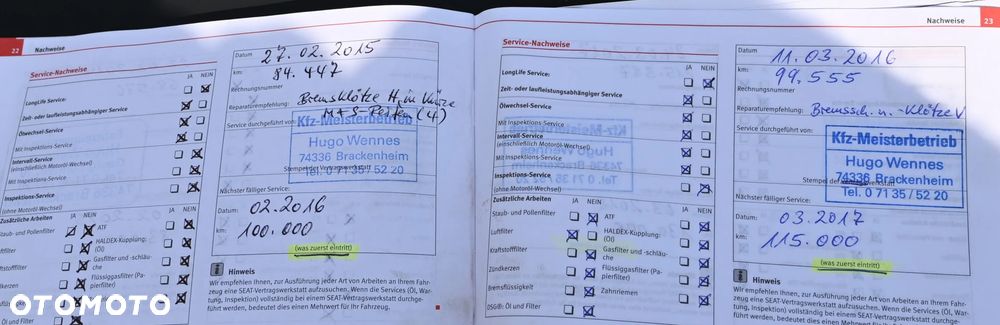 22 Nachweise
Service-Nachweise
JA NEIN
LongLife Service:
Zeit- oder laufleistungsabhängiger Service
Ölwechsel-Service
Mit Inspektions-Service
Intervall-Service
(einschließlich Motoröl-Wechsel)
Mit Inspektions-Service
Inspektions-Service
(ohne Motoröl-Wechsel)
Zusätzliche Arbeiten JA NEIN JA NEIN
Staub- und Pollenfilter ATF
Luftfilter HALDEX-Kupplung: (Öl)
Kraftstofffilter Gasfilter und -schläuche
Zündkerzen Flüssiggasfilter (Papierfilter)
Datum 27.02.2015
km: 84.447
Rechnungsnummer
Reparaturempfehlung: Bremsklötze H. in Kürze
M+S-Reifen (4)
Service durchgeführt von:
Kfz-Meisterbetrieb
Hugo Wennes
74336 Brackenheim
Stempel
Tel. 0 71 35 / 52 20
Nächster fälliger Service:
Datum: 02.2016
km: 100.000
(was zuerst eintritt)
Hinweis
Wir empfehlen Ihnen, zur Ausführung jeder Art von Arbeiten an Ihrem Fahr-
zeug eine SEAT-Vertragswerkstatt aufzusuchen. Wenn die Services (Öl, War-
tung, Inspektion) vollständig bei einem SEAT-Vertragswerkstatt durchge-
führt werden, bedeutet dies einen Mehrwert für Ihr Fahrzeug.
OTOMOTO
Nachweise 23
Service-Nachweise
JA NEIN
LongLife Service:
Zeit- oder laufleistungsabhängiger Service
Ölwechsel-Service
Mit Inspektions-Service
Intervall-Service
(einschließlich Motoröl-Wechsel)
Mit Inspektions-Service
Inspektions-Service
(ohne Motoröl-Wechsel)
Zusätzliche Arbeiten JA NEIN JA NEIN
Staub- und Pollenfilter ATF
Luftfilter HALDEX-Kupplung: (Öl)
Kraftstofffilter Gasfilter und -schläuche
Zündkerzen Flüssiggasfilter (Papierfilter)
Bremsflüssigkeit Zahnriemen
DSG®: Öl und Filter
Datum 11.03.2016
km: 99.555
Rechnungsnummer
Reparaturempfehlung: Bremssch. u. -Klötze V
Service durchgeführt von:
Kfz-Meisterbetrieb
Hugo Wennes
74336 Brackenheim
Stempel der
Tel. 0 71 35 / 52 20
Nächster fälliger Service:
Datum: 03.2017
km: 115.000
(was zuerst eintritt)
Hinweis
Wir empfehlen Ihnen, zur Ausführung jeder Art von Arbeiten an Ihrem Fahr-
zeug eine SEAT-Vertragswerkstatt aufzusuchen. Wenn die Services (Öl, War-
tung, Inspektion) vollständig bei einem SEAT-Vertragswerkstatt durchge-
führt werden, bedeutet dies einen Mehrwert für Ihr Fahrzeug.